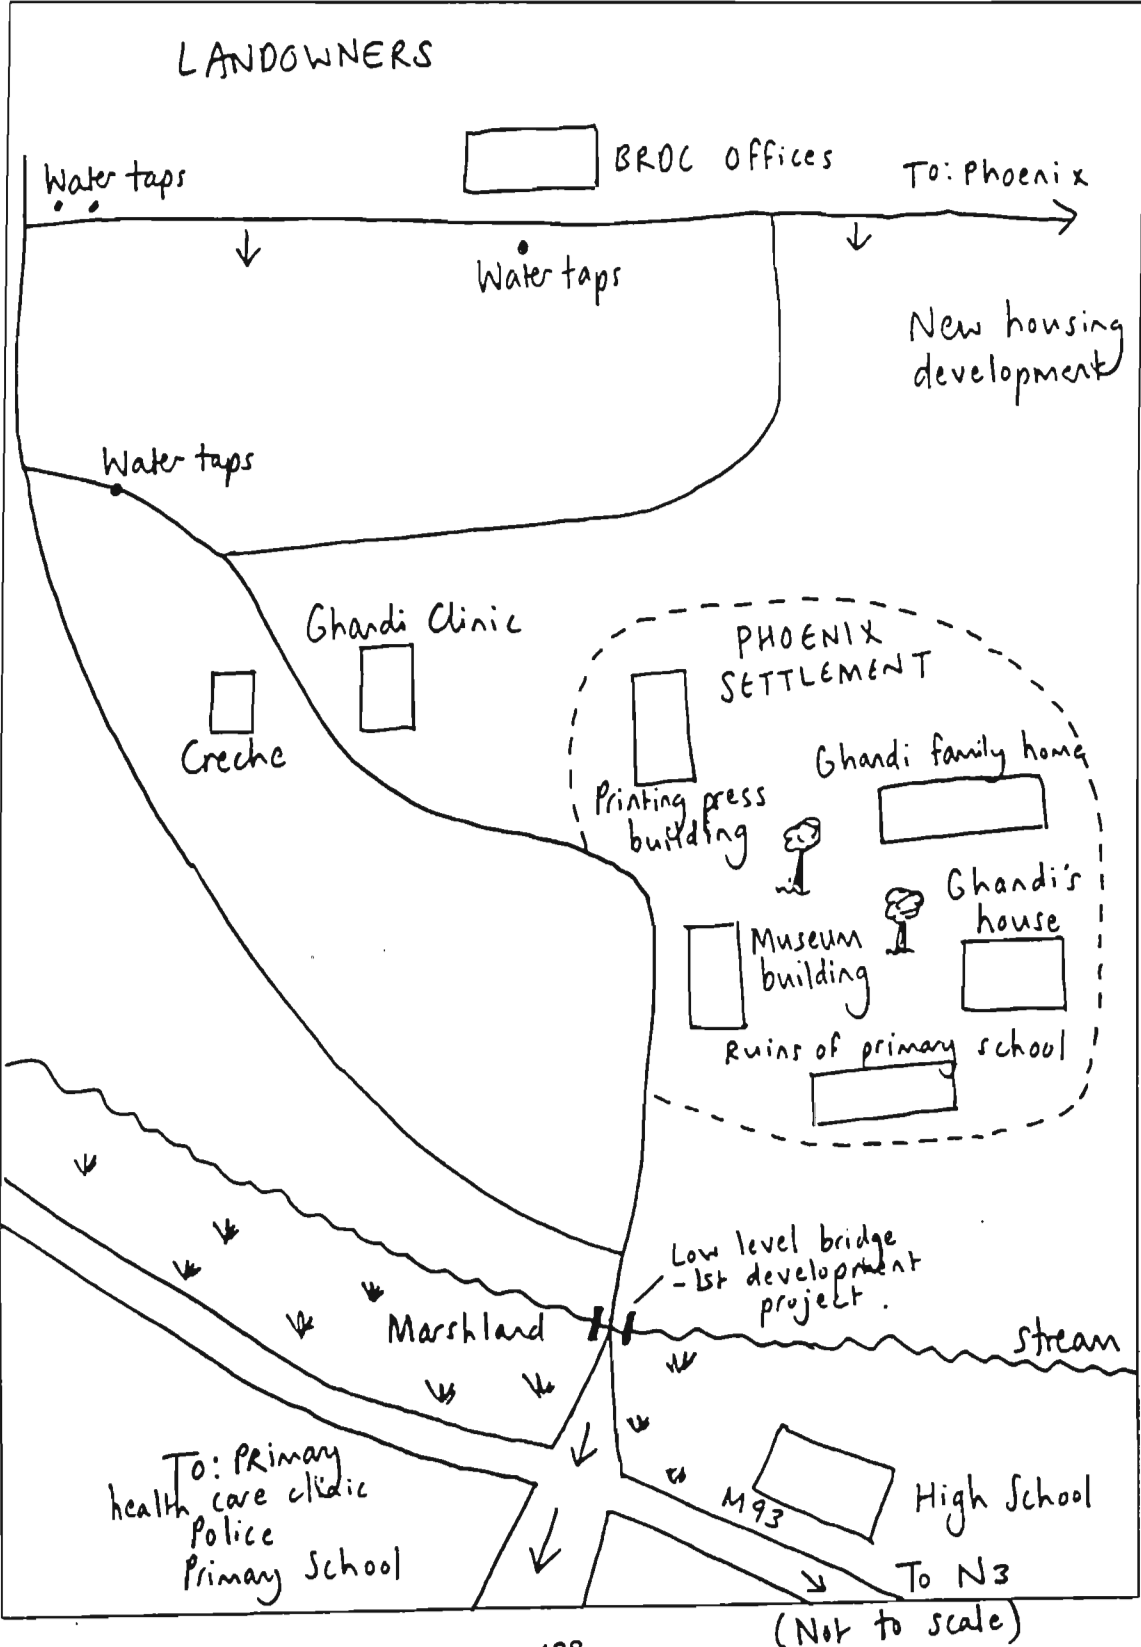 LANDOWNERS
BRDC Offices
To: Phoenix
Water taps
Water taps
New housing
development
Water taps
Ghandi Clinic
Creche
PHOENIX
SETTLEMENT
Printing press
building
Ghandi family home
Ghandi's
house
Museum
building
Ruins of primary school
Low level bridge
- 1st development
project.
Marshland
Stream
To: PRimary
health care clinic
Police
Primary School
M93
High School
To N3
(Not to scale)